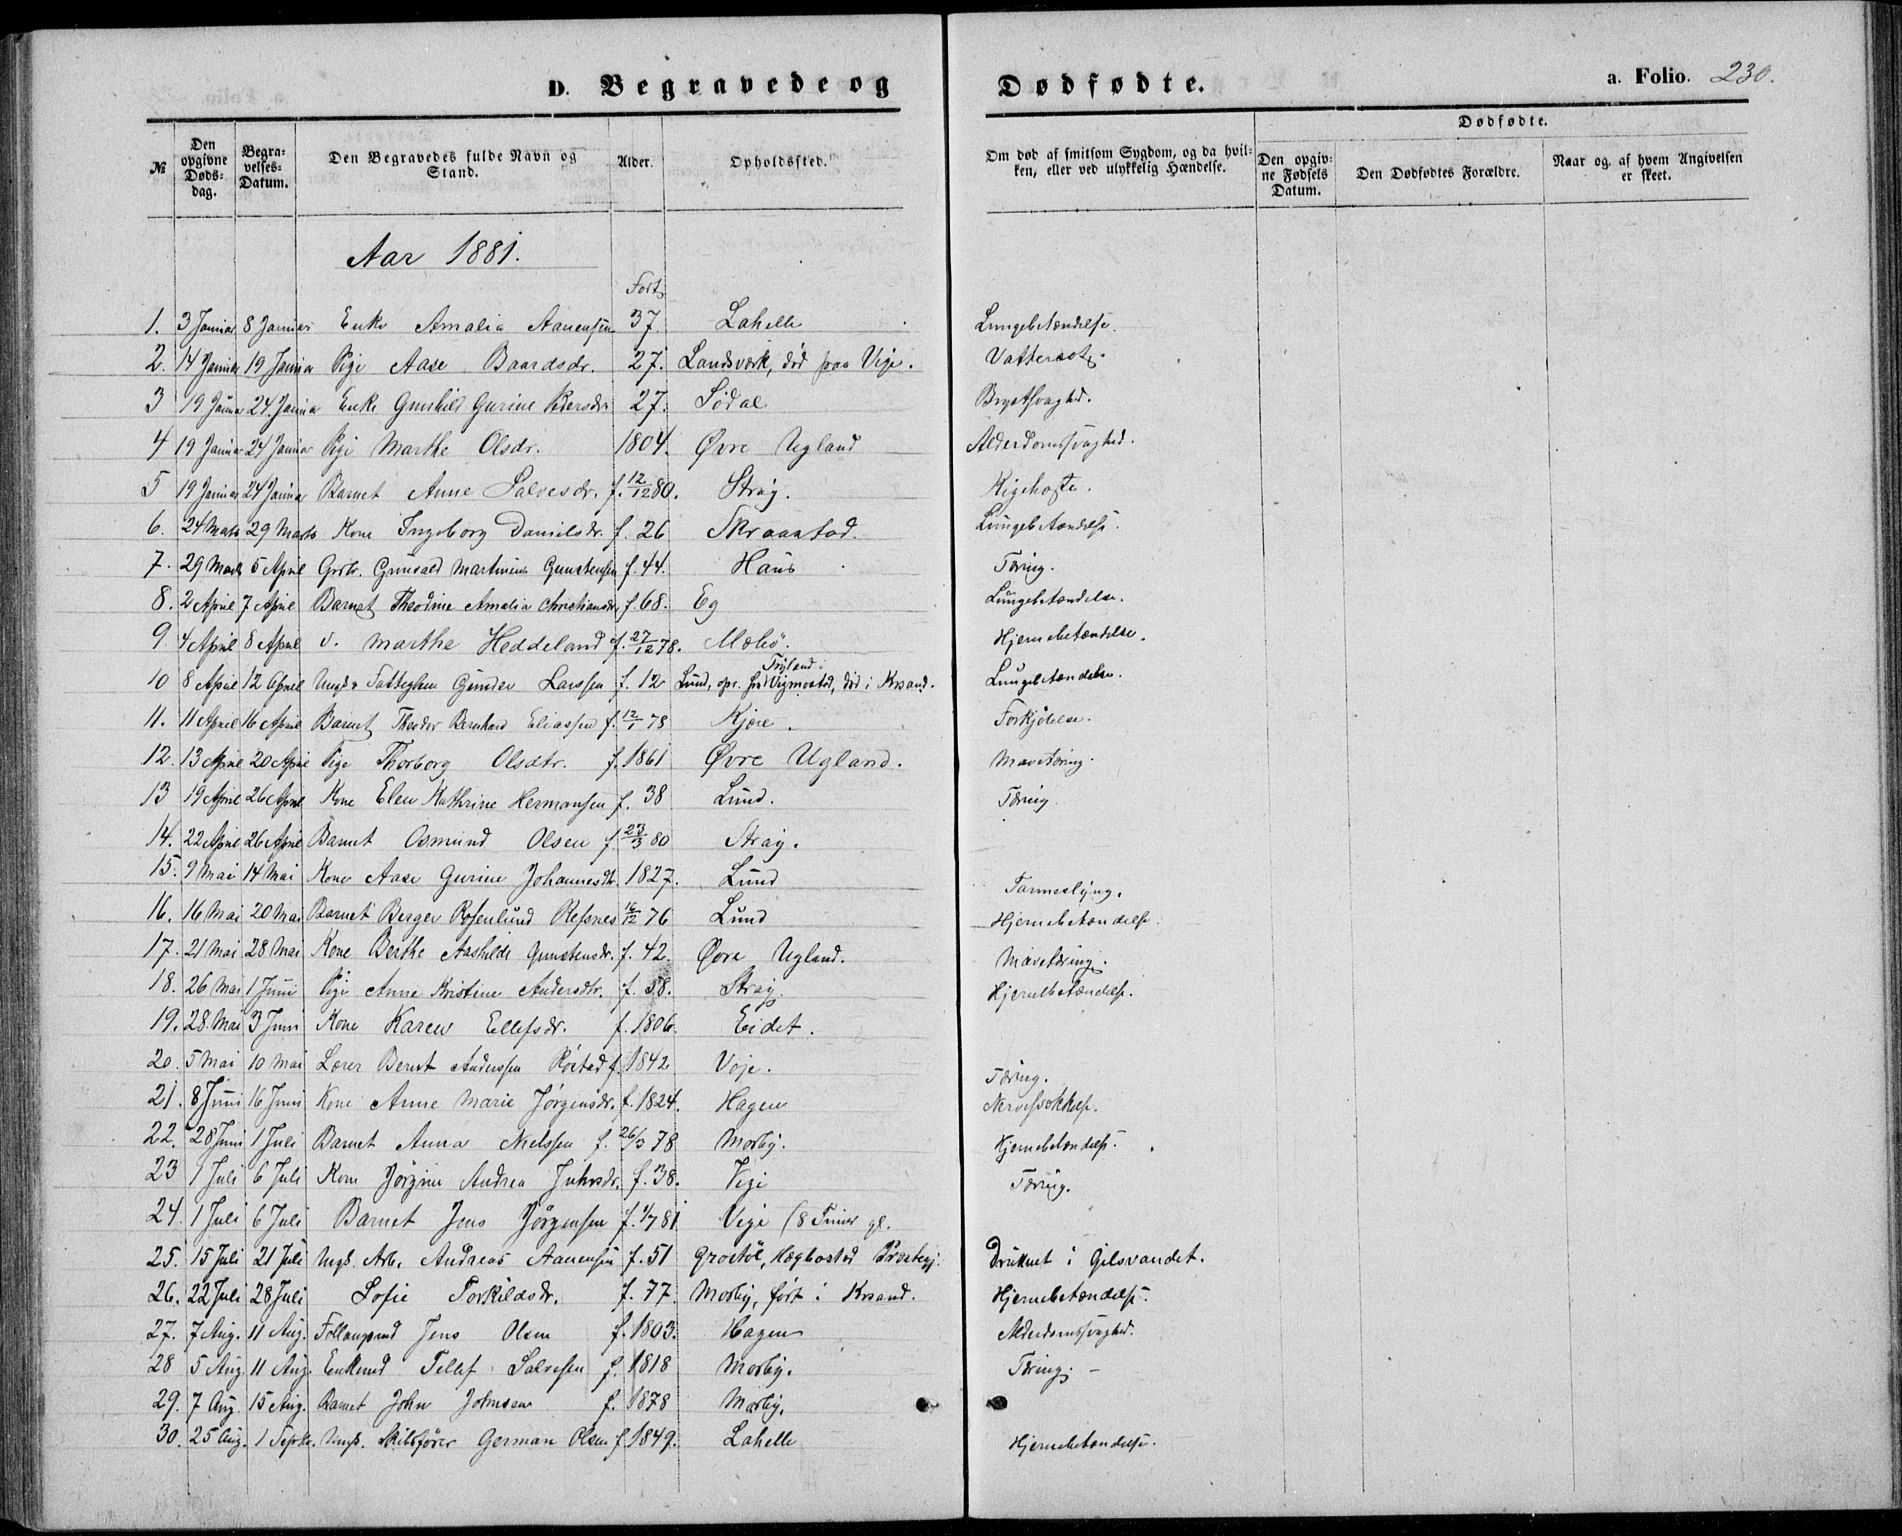 D. Begravede og Dødfødte.
a. Folio. 230.
№ | Den opgivne Døds-dag. | Begra-velses-Datum. | Den Begravedes fulde Navn og Stand. | Alder. | Opholdssted. | Om død af smitsom Sygdom, og da hvil-ken, eller ved ulykkelig Hændelse. | Dødfødte. | Den opgiv-ne Fødsels Datum. | Den Dødfødtes Forældre. | Naar og af hvem Angivelsen er skeet.
Aar 1881.
1. 3 Januar 8 Januar Enke Amalia Aanensen 37. Lahelle Lungebetændelse.
2. 14 Januar 19 Januar Pige Aase Baardsdr. 27. Landsværk, død paa Vige. Vattersot.
3 19 Januar 24 Januar Enke Gunhild Gurine Pedersdr. 27. Sødal Brystsvaghed.
4 19 Januar 24 Januar Pige Marthe Olsdr. 1804. Øvre Ugland Alderdomssvaghed.
5 19 Januar 24 Januar Barnet Anne Salvesdr. f. 12/12 80. Stray. Kighoste.
6. 24 Marts 29 Marts Kone Ingeborg Danielsdr. f. 26 Skraastad. Lungebetændelse.
7. 29 Marts 5 April Grdbr. Gunvald Martinius Gunstensen f. 44. Haus Tæring.
8. 2 April 7 April Barnet Theodine Amalia Christiansdr. f. 68. Eg Lungebetændelse.
9 4 April 8 April d. Marthe Heddeland f. 27/12 78. Mæbø. Hjernebetændelse.
10 8 April 12 April Ungk. Fattiglem Gunder Larssen f. 12 Lund, opr. fra Tryland i Vigmostad, død i Krsand. Lungebetændelse.
11. 11 April 16 April Barnet Theodor Bernhard Eliassen f. 12/1 78 Kjære. Forkjølelse.
12. 13 April 20 April Pige Thorborg Olsdtr. f. 1861 Øvre Ugland. Mavetæring.
13 19 April 26 April Kone Elen Kathrine Hermansen f. 38 Lund. Tæring
14. 22 April 26 April Barnet Osmund Olsen f. 23/3 80 Stray.
15. 9 Mai 14 Mai Kone Aase Gurine Johannesdtr. 1827. Lund Tarmeslyng.
16. 16 Mai 20 Mai Barnet Berger Rosenlund Refsnes 16/12 76 Lund Hjernebetændelse.
17. 21 Mai 28 Mai Kone Berthe Aashilde Gunstensdr. f. 42. Øvre Ugland. Mavetæring.
18. 26 Mai 1 Juni Pige Anne Kristine Andersdtr. f. 58. Stray. Hjernebetændelse.
19. 28. Mai 3 Juni Kone Karen Ellefsdr. f. 1806. Eidet.
20. 5 Mai 10 Mai Lærer Bernt Anderssen Røstad f. 1842 Voje. Tæring.
21. 8 Juni 16 Juni Kone Anne Marie Jørgensdr. f. 1824. Hagen Nervesvækkelse.
22. 28 Juni 1 Juli Barnet Anna Nielssen f. 26/3 78 Mosby. Hjernebetændelse.
23 1 Juli 6 Juli Kone Jørgine Andrea f. 38. Vige Tæring.
24. 1 Juli 6 Juli Barnet Jens Jørgensen f. 1/7 81 Vige (8 Timer gl.
25. 15 Juli 21 Juli Ungk. Arb. Andreas Aanensen f. 51 Grostøl, Hægbostad Præstegj. Druknet i Gilsvandet.
26. 22 Juli 28 Juli Sofie Torkildsdr. f. 77. Mosby, født i Krsand. Hjernebetændelse.
27. 7 Aug. 11 Aug. Føllaugsmd Jens Olsen f. 1803. Hagen Alderdomssvaghed.
28 5 Aug. 11 Aug. Enkemd Tellef Salvesen f. 1818 Mosby. Tæring. —
29. 7 Aug. 15 Aug. Barnet John Johnsen f. 1878 Mosby.
30. 25 Aug. 1 Septbr. Ungk. Skibsfører German Olsen f. 1849. Lahelle Hjernebetændelse.